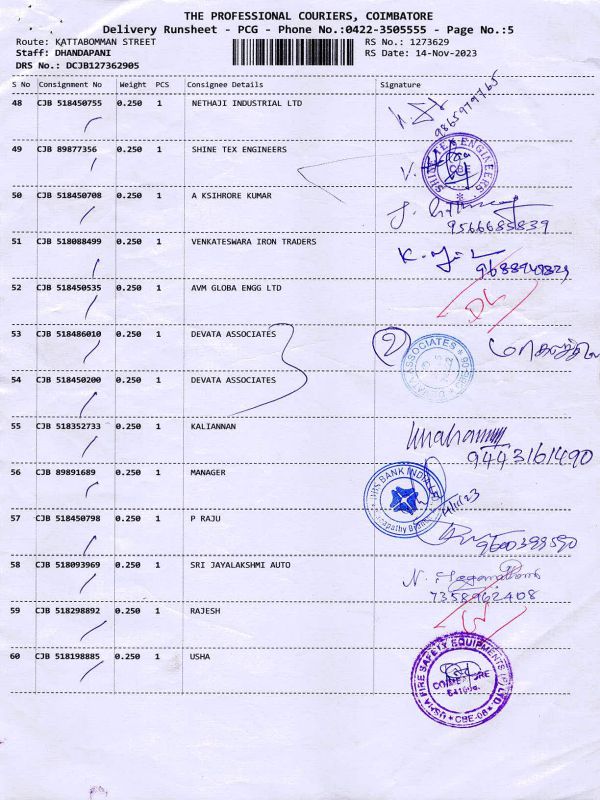 THE PROFESSIONAL COURIERS, COIMBATORE
Delivery Runsheet - PCG - Phone No.:0422-3505555 - Page No.:5
Route: KATTABOMMAN STREET RS No.: 1273629
Staff: DHANDAPANI RS Date: 14-Nov-2023
DRS No.: DCJB127362905
S No Consignment No Weight PCS Consignee Details Signature
48 CJB 518450755 0.250 1 NETHAJI INDUSTRIAL LTD
9865979765
49 CJB 89877356 0.250 1 SHINE TEX ENGINEERS
SHINE TEX ENGINEERS CBE
50 CJB 518450708 0.250 1 A KSIHRORE KUMAR
9566685839
51 CJB 518088499 0.250 1 VENKATESWARA IRON TRADERS
52 CJB 518450535 0.250 1 AVM GLOBA ENGG LTD
DL
53 CJB 518486010 0.250 1 DEVATA ASSOCIATES
2 DEVATA ASSOCIATES
54 CJB 518450200 0.250 1 DEVATA ASSOCIATES
55 CJB 518352733 0.250 1 KALIANNAN
9443161490
56 CJB 89891689 0.250 1 MANAGER
57 CJB 518450798 0.250 1 P RAJU
58 CJB 518093969 0.250 1 SRI JAYALAKSHMI AUTO
7358962408
59 CJB 518298892 0.250 1 RAJESH
60 CJB 518198885 0.250 1 USHA
USHA FIRE SAFETY EQUIPMENTS (P) LTD. CBE-06
COIMBATORE